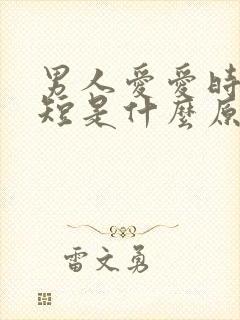 男人愛愛時
短是什麼原
雷文勇